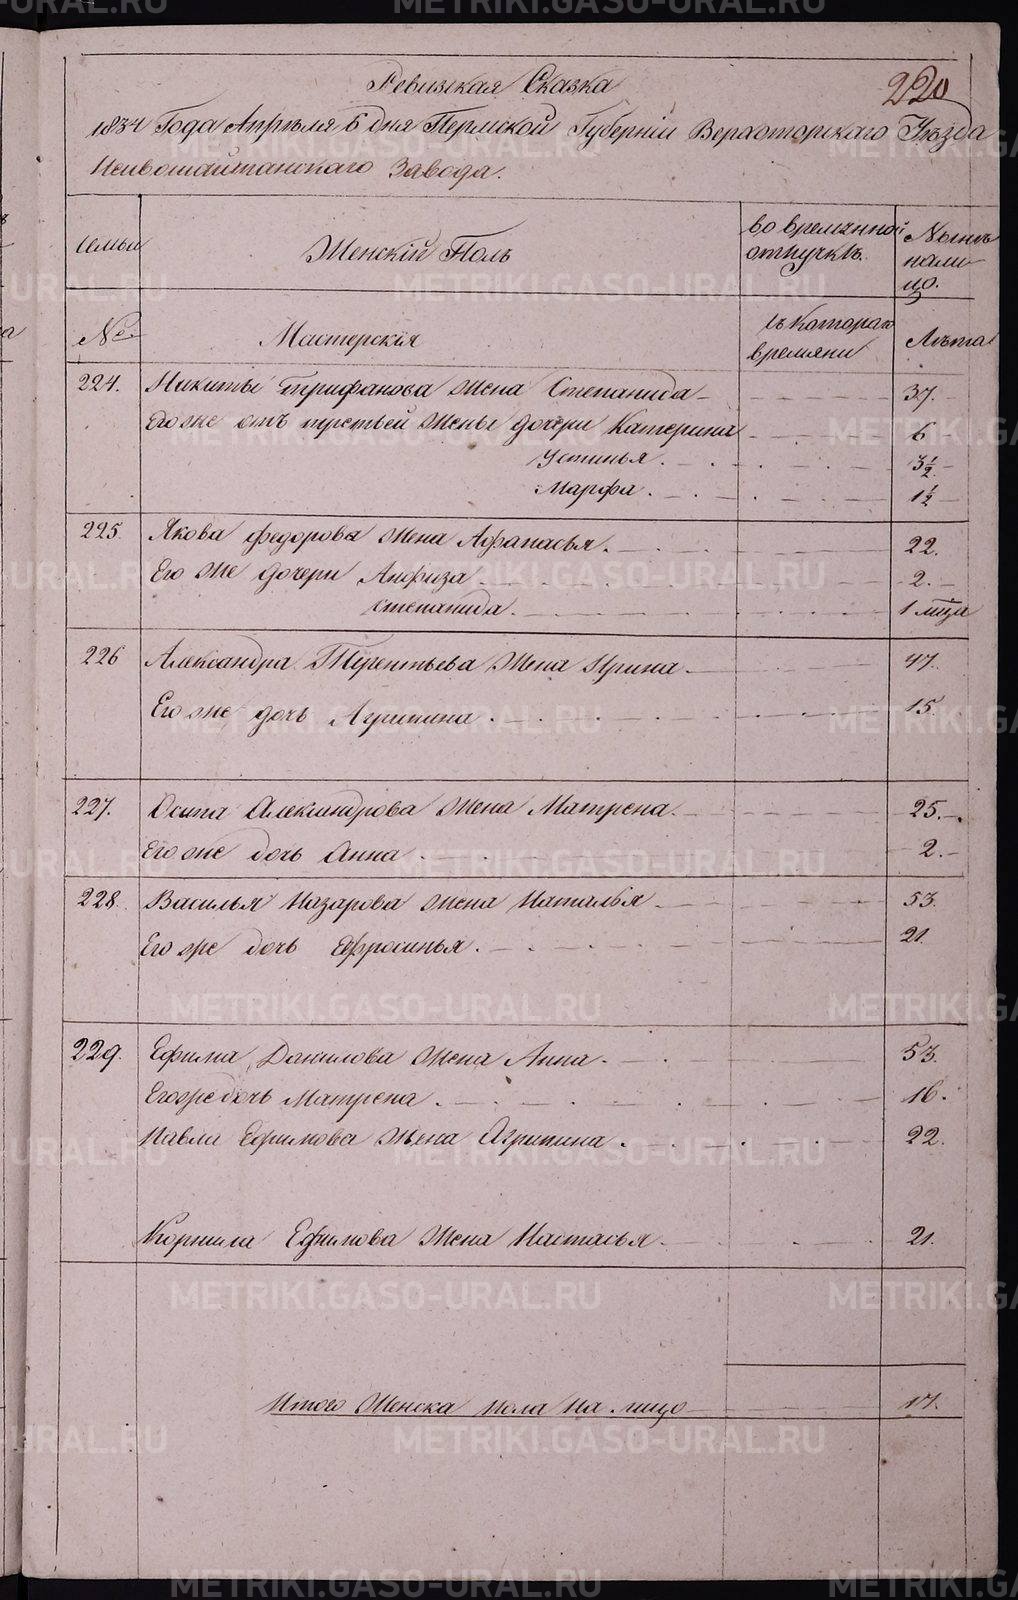 220
Ревизкая Сказка
1834 Года Апреля 6 дня Пермской Губернии Верхотурскаго Уезда
Невьошайтанскаго Завода.
семьи
Женскій Полъ
во временной отлучкѣ.
Нынѣ налицо.
№
Мастерскія
съ котораго времяни
Лѣта
224. Никиты Трифанова жена Степанида 37.
Его же отъ третьей жены дочери Катерина 6
Устинья 3 1/2
Марфа 1 1/2
225. Якова Федорова жена Афанасья 22.
Его же дочери Анфиза 2.
степанида 1 м͠ца
226 Александра Терентьева жена Ирина 47.
Его же дочь Агрипина 15.
227. Осипа Александрова жена Матрена 25.
Его же дочь Анна 2.
228. Василья Назарова жена Наталья 53.
Его же дочь Ефросинья 21.
229. Ефима Данилова жена Анна 53.
Его же дочь Матрена 16.
Павла Ефимова жена Агрипина 22.
Корнила Ефимова жена Настасья 21.
Итого женска пола на лицо 17.
METRIKI.GASO-URAL.RU